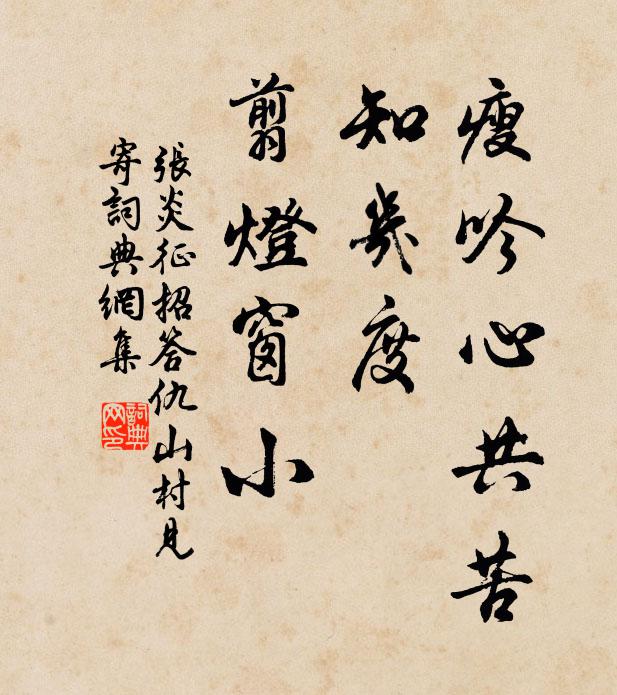 瘦吟心共苦
知幾度
翦燈窗小
張炎征招答仇山村見
寄詞典網集
詞典網印